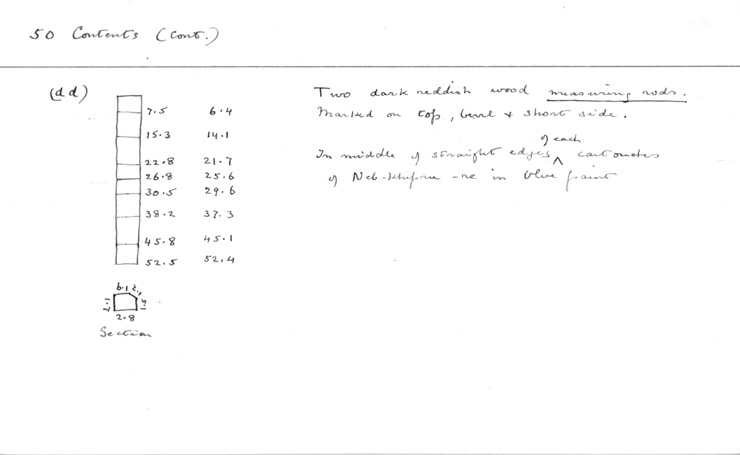 50 Contents (Cont.)
(dd)
Two dark reddish wood measuring rods.
Marked on top, bevel & short side.
In middle of straight edges of each cartouches
of Neb-khepru-re in blue paint
7.5 6.4
15.3 14.1
22.8 21.7
26.8 25.6
30.5 29.6
38.2 37.3
45.8 45.1
52.5 52.4
2.8
Section